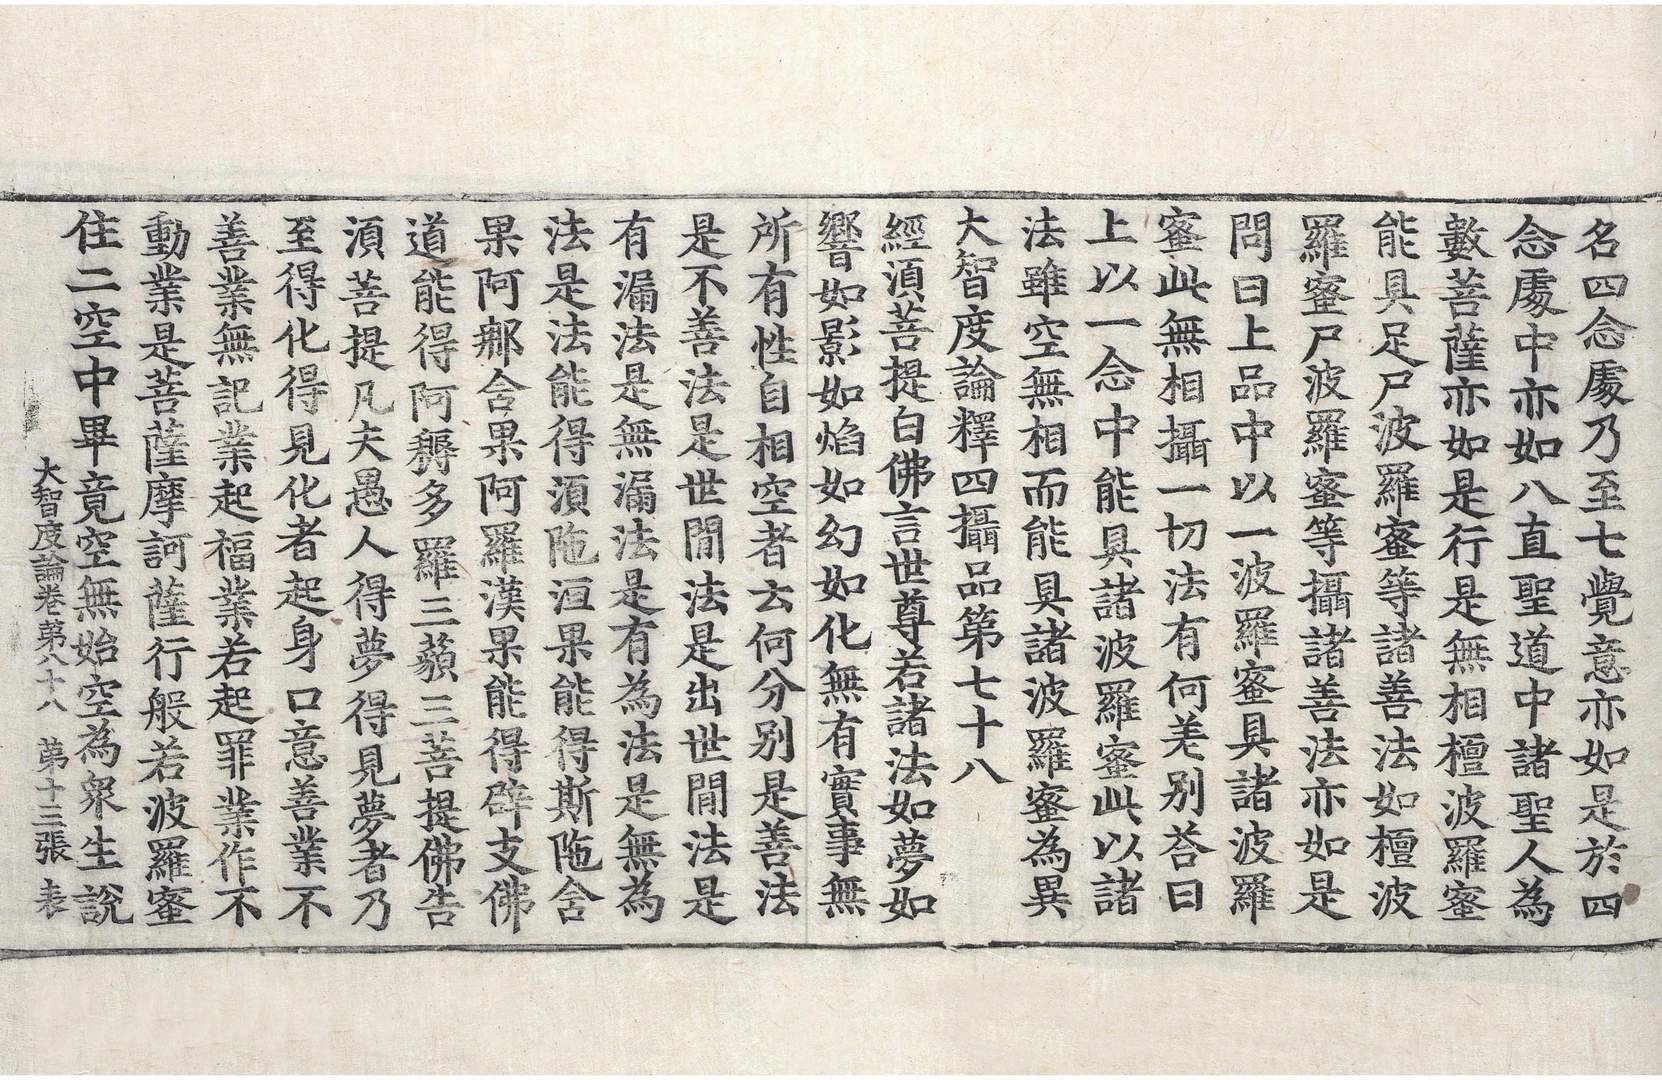 名四念處乃至七覺意亦如是於四
念處中亦如八直聖道中諸聖人為
數菩薩亦如是行是無相檀波羅蜜
能具足尸波羅蜜等諸善法如檀波
羅蜜尸波羅蜜等攝諸善法亦如是
問曰上品中以一波羅蜜具諸波羅
蜜此無相攝一切法有何差別荅曰
上以一念中能具諸波羅蜜此以諸
法雖空無相而能具諸波羅蜜為異
大智度論釋四攝品第七十八
經湏菩提白佛言世尊若諸法如夢如
響如影如焰如幻如化無有實事無
所有性自相空者云何分別是善法
是不善法是世閒法是出世閒法是
有漏法是無漏法是有為法是無為
法是法能得湏陁洹果能得斯陁含
果阿那含果阿羅漢果能得辟支佛
道能得阿耨多羅三藐三菩提佛告
湏菩提凡夫愚人得夢得見夢者乃
至得化得見化者起身口意善業不
善業無記業起福業若起罪業作不
動業是菩薩摩訶薩行般若波羅蜜
住二空中畢竟空無始空為衆生說
大智度論卷第八十八 第十三張 表